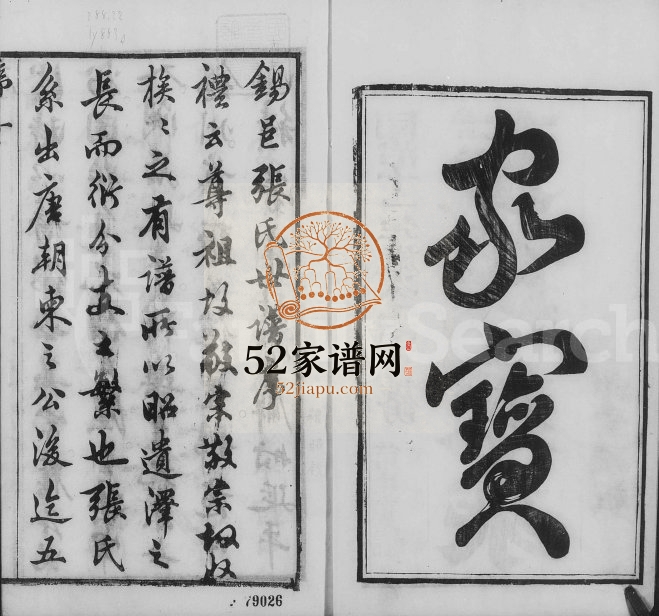 家寶
錫邑張氏世譜序
禮云尊祖故敬宗敬宗故收
族〻之有譜所以昭遺澤之
長而衍分支之繁也張氏
系出唐朝柬之公後迄五
52家谱网
52jiapu.com
Search
79026